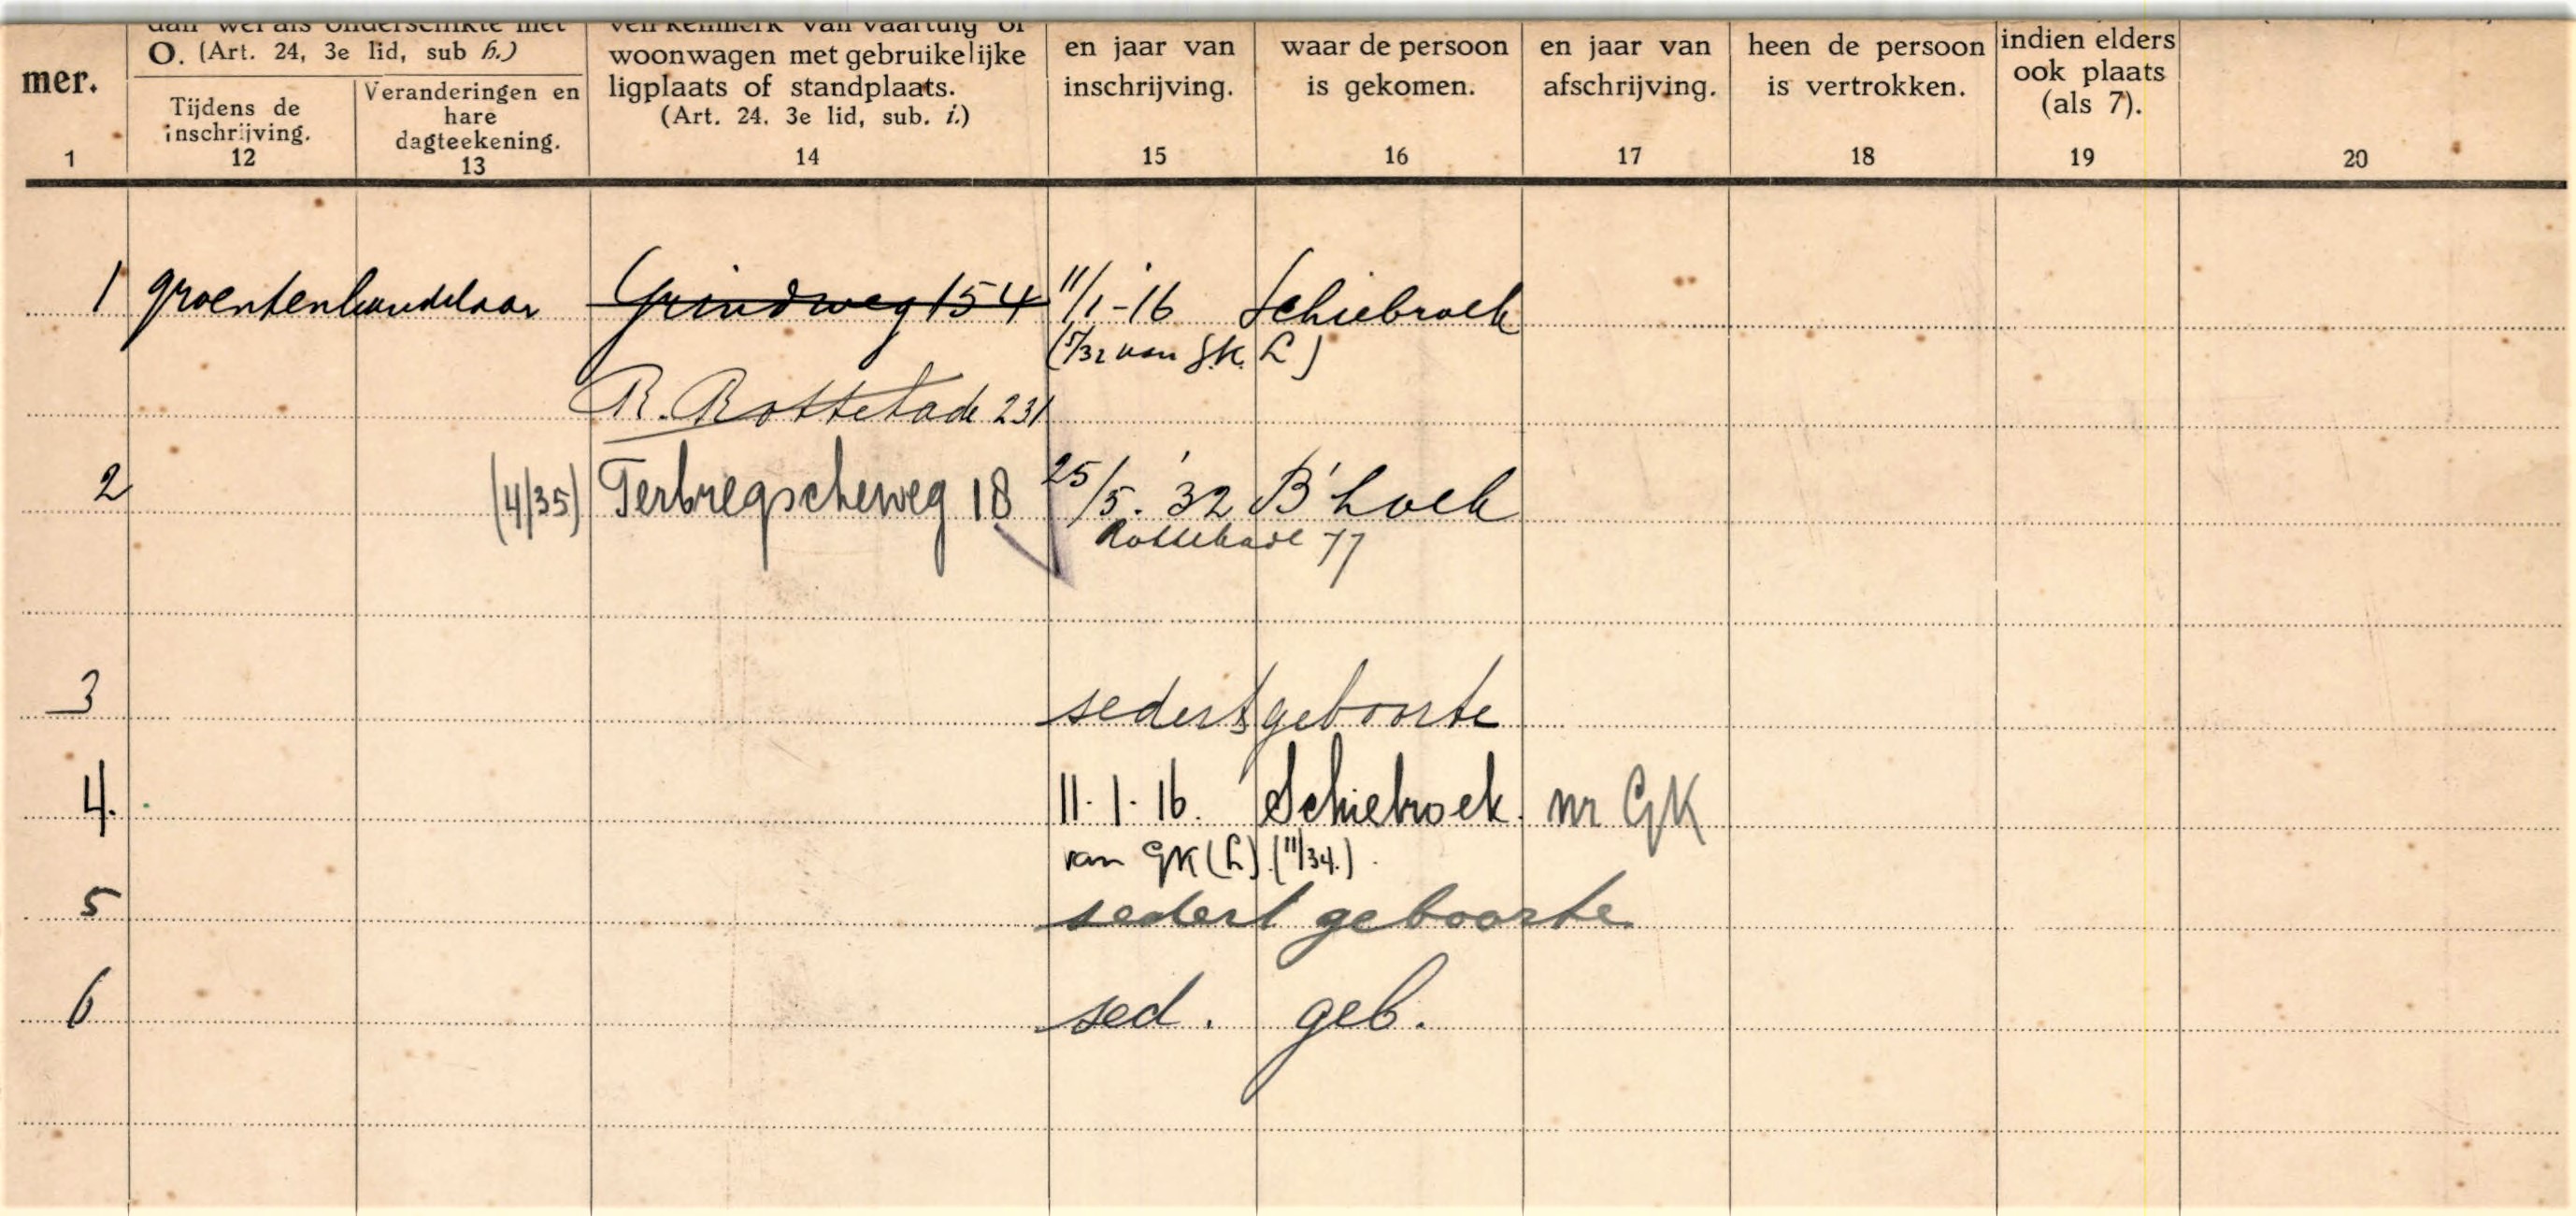 dan wel als ondergeschikte met
O. (Art. 24, 3e lid, sub h.)
mer.
Tijdens de
inschrijving.
Veranderingen en
hare
dagteekening.
van vaartuig of
woonwagen met gebruikelijke
ligplaats of standplaats.
(Art. 24. 3e lid, sub. i.)
en jaar van
inschrijving.
waar de persoon
is gekomen.
en jaar van
afschrijving.
heen de persoon
is vertrokken.
indien elders
ook plaats
(als 7).
1 12 13 14 15 16 17 18 19 20
1 groentenhandelaar Grindweg 154 11/1-16 Schiebroek
(5/32 van G.K. L)
R. Rottekade 231
2 (4/35) Terbregscheweg 18 25/5.'32 B'hoek
Rottekade 77
3 sedert geboorte
4. 11.1.16. Schiebroek. nr GK
van GK (L) (11/34.).
5 sedert geboorte
6 sed. geb.